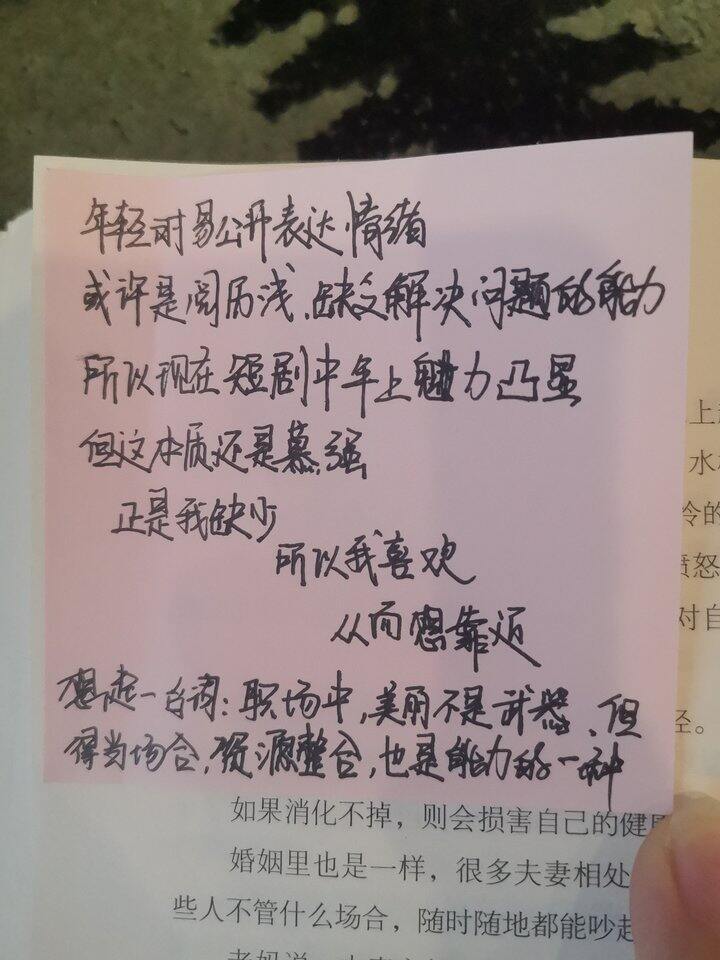 年轻时易公开表达情绪
或许是阅历浅、缺乏解决问题的能力
所以现在短剧中年上魅力凸显
但这本质还是慕强
正是我缺少
所以我喜欢
从而想靠近
想起一台词：职场中，美丽不是武器、但
得当场合，资源整合，也是能力的一种
上
水
冷的
愤怒
对自
经。
如果消化不掉，则会损害自己的健
婚姻里也是一样，很多夫妻相处
些人不管什么场合，随时随地都能吵
老妈说